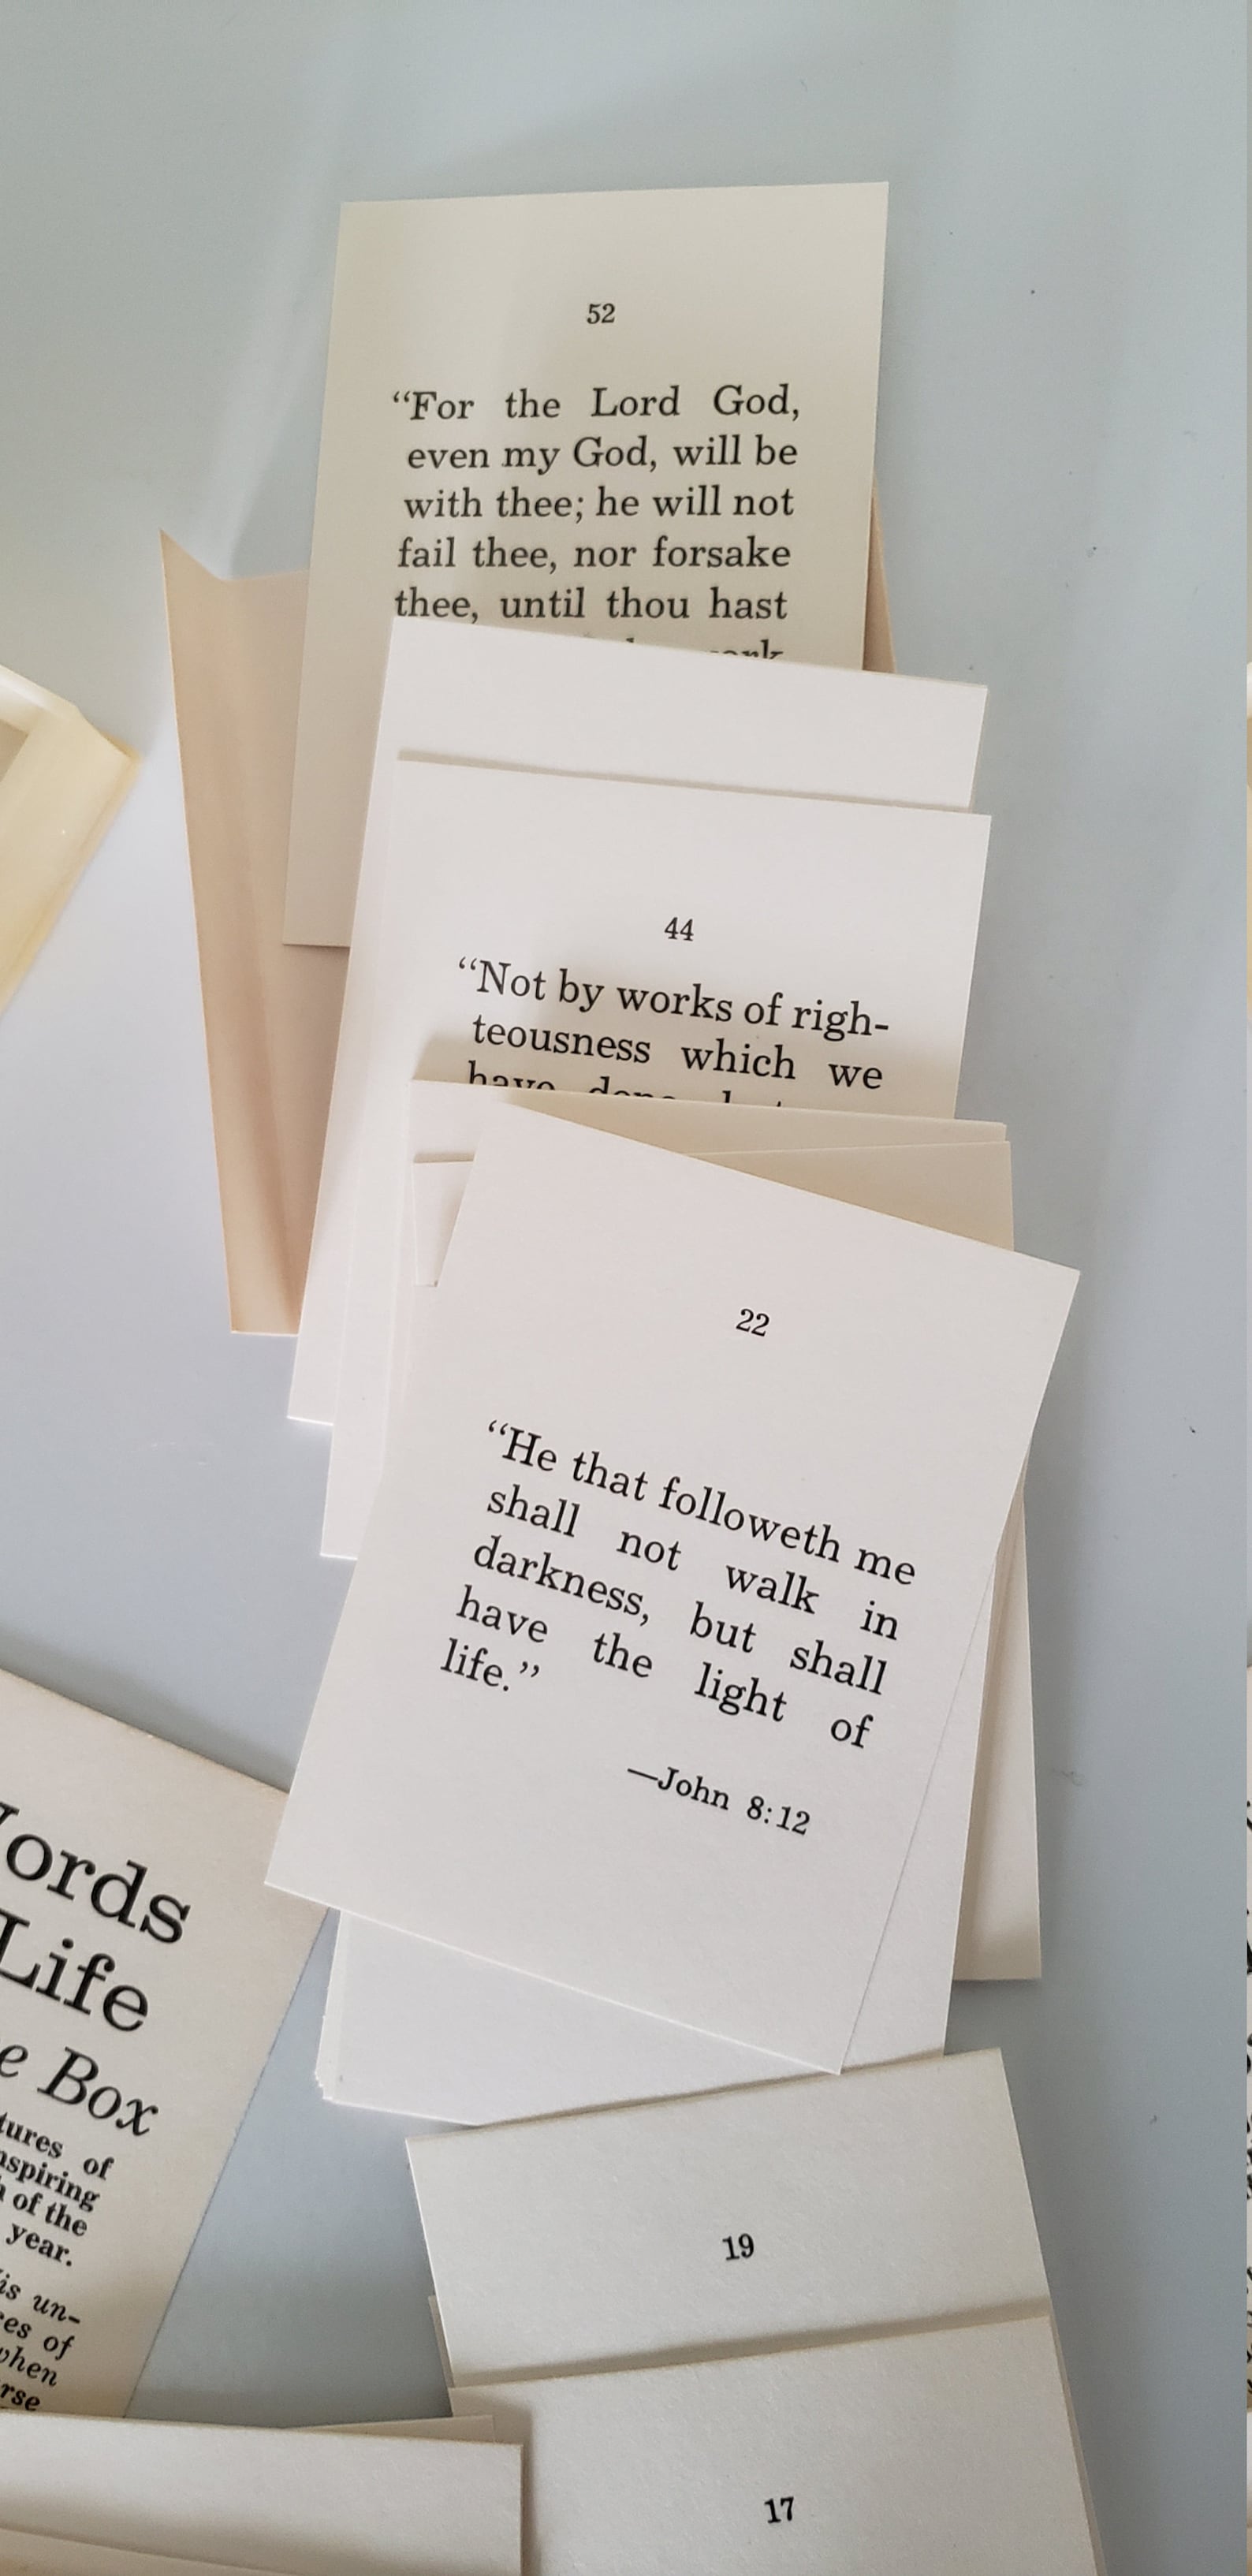 52
“For the Lord God,
even my God, will be
with thee; he will not
fail thee, nor forsake
thee, until thou hast
44
“Not by works of righ-
teousness which we
have done
22
“He that followeth me
shall not walk in
darkness, but shall
have the light of
life.”
—John 8:12
ords
Life
e Box
tures of
nspiring
of the
year.
is un-
es of
when
rse
19
17